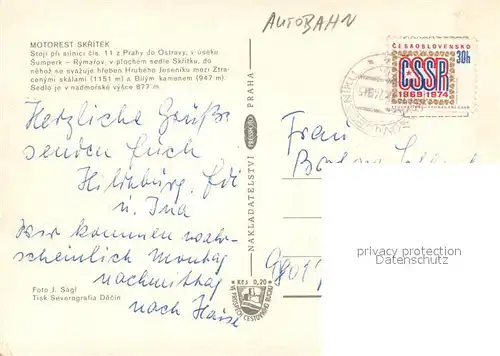 AUTOBAHN
MOTOREST SKŘÍTEK
Stojí při silnici čís. 11 z Prahy do Ostravy, v úseku
Šumperk – Rýmařov, v plochém sedle Skřítku, do
něhož se svažuje hřeben Hrubého Jeseníku mezi Ztra-
cenými skalami (1151 m) a Bílým kamenem (947 m).
Sedlo je v nadmořské výšce 877 m.
ČESKOSLOVENSKO
30h
ČSSR
1969-1974
Herzliche Grüße
senden Euch
Edi
u. Ina
Wir kommen wahr-
scheinlich Montag
nachmittag
nach Hause
Frau
privacy protection
watermark
NAKLADATELSTVÍ
PRESSFOTO
PRAHA
Foto J. Ságl
Tisk Severografia Děčín
Kčs 0,20
VE PROSPĚCH CESTOVNÍHO RUCHU